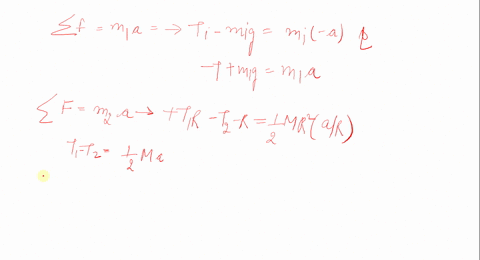 ∑f = m₁a => T₁ - m₁g = m₁(-a)
-T + m₁g = m₁a
∑F = m₂a → +T₁R - T₂-R = 1/2 MR²(a/R)
T₁-T₂ = 1/2 Ma